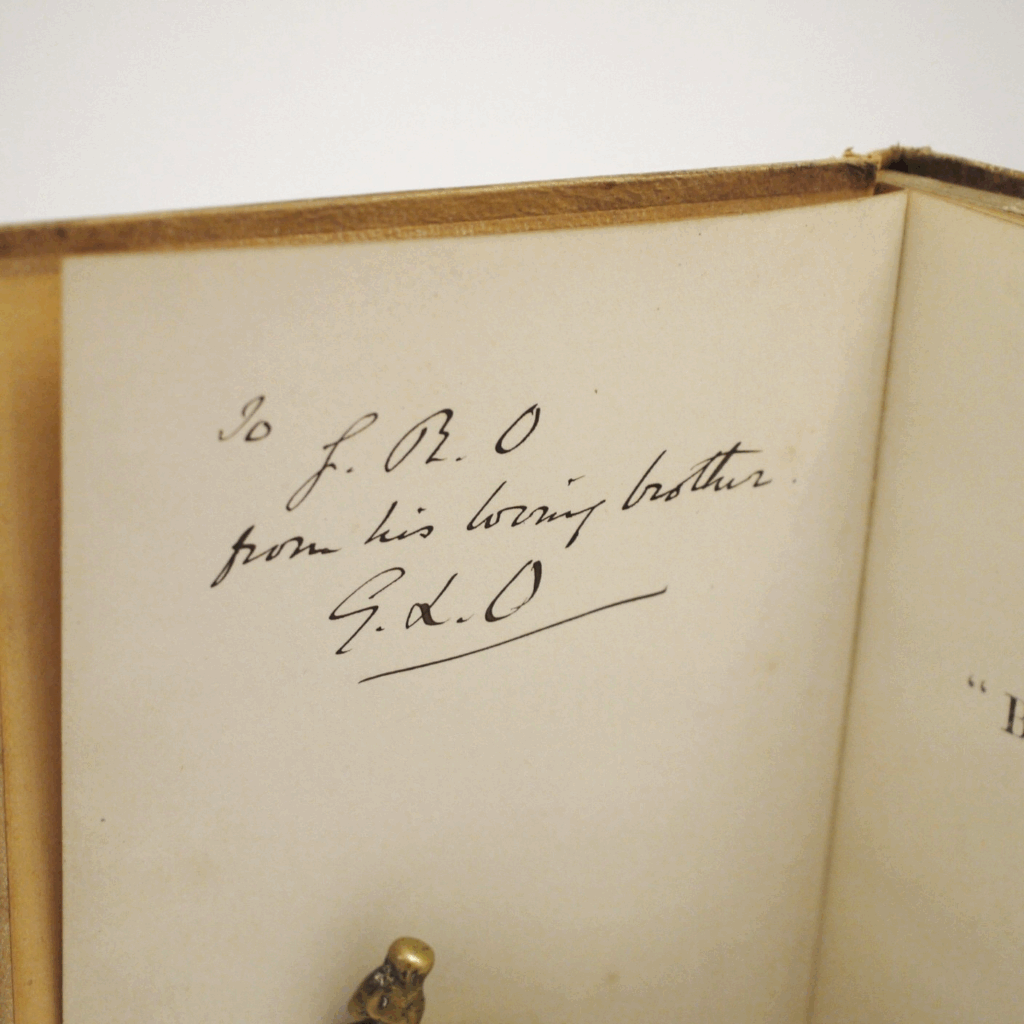 To
J. R. O
from his loving brother.
G. L. O
"